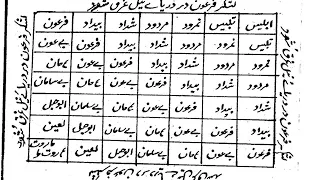 لشکر فرعون در دریائے نیل غرق شود
ابلیس تلبیس نمرود مردود شداد بیداد فرعون
تلبیس نمرود مردود شداد بیداد فرعون بےعون
نمرود مردود شداد بیداد فرعون بےعون ہامان
مردود شداد بیداد فرعون بےعون ہامان بےسامان
شداد بیداد فرعون بےعون ہامان بےسامان ابوجہل
بیداد فرعون بےعون ہامان بےسامان ابوجہل لعین
فرعون بےعون ہامان بےسامان ابوجہل لعین ہاروت ماروت
لشکر فرعون در دریائے نیل غرق شود
لشکر فرعون در دریائے نیل غرق شود